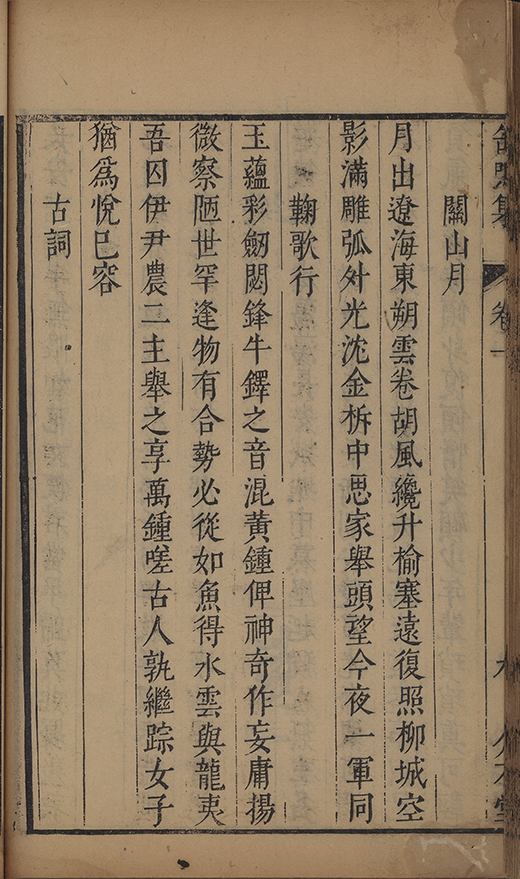 關山月
月出遼海東朔雲卷胡風纔升榆塞遠復照柳城空
影滿雕弧外光沈金柝中思家舉頭望今夜一軍同
鞠歌行
玉蘊彩劒閟鋒牛鐸之音混黃鍾俾神奇作妄庸揚
微察陋世罕逢物有合勢必從如魚得水雲與龍夷
吾囚伊尹農二主舉之享萬鍾嗟古人孰繼踪女子
猶為悅已容
古詞
卷一